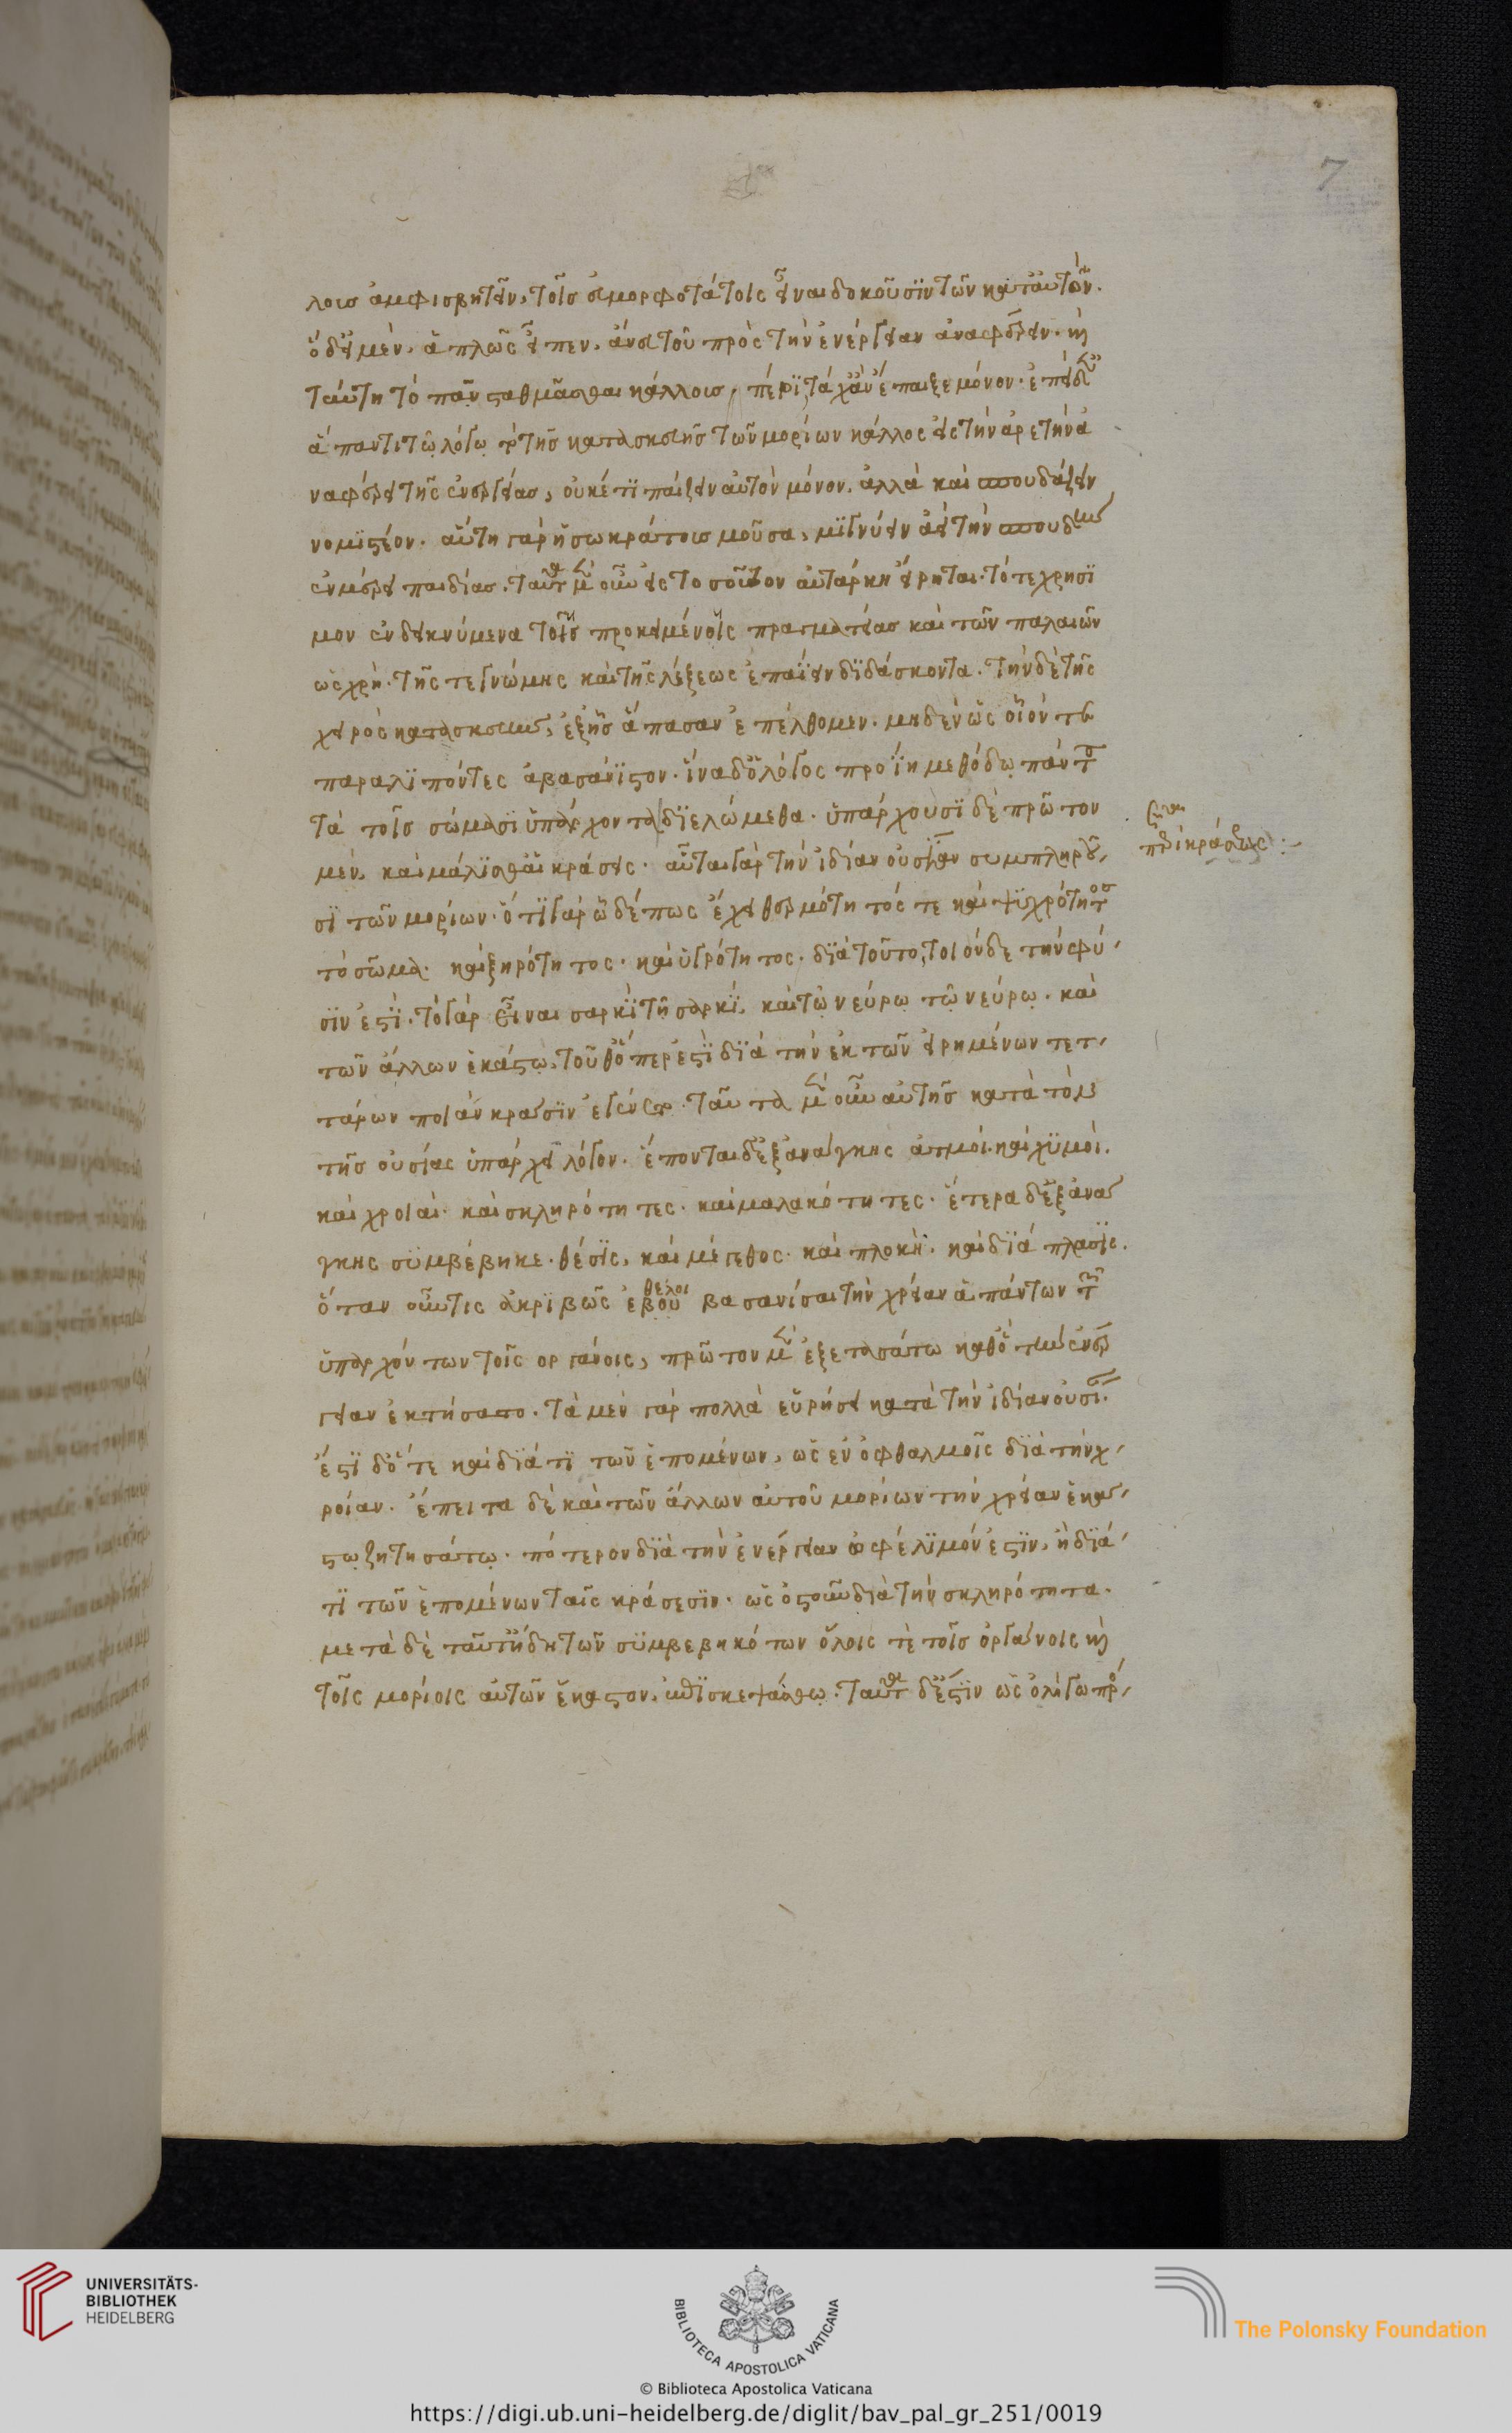 7
λοις ἀμφισβητεῖν, τοῖς εὐμορφοτάτοις εἶναι δοκοῦσιν τῶν κατ' αὐτόν.
ὁ δ' εἰ μὲν ἁπλῶς εἶπεν, ἄνευ τοῦ πρὸς τὴν ἐνέργειαν ἀναφέρειν. καὶ
ταύτη τὸ πᾶν σταθμᾶσθαι κάλλους, περὶ τάχ' ἂν ἔπαιξε μόνον. ἐπεὶ δ' ἐν
ἅπαντι τῷ λόγῳ τὸ τῆς κατασκευῆς τῶν μορίων κάλλος εἰς τὴν ἀρετὴν ἀ
ναφέρει τῆς ἐνεργείας, οὐκέτι παίζειν αὐτὸν μόνον, ἀλλὰ καὶ σπουδάζειν
νομιστέον. αὕτη γὰρ ἡ σωκράτους μοῦσα, μιγνύειν ἀεὶ τὴν σπουδὴν
ἐν μέρει παιδιᾶς. ταῦτα μὲν οὖν εἰς τοσοῦτον αὐτάρκη εἴρηται. τό τε χρήσι
μον ἐνδεικνύμενα τοῖς προκειμένοις πραγματείας καὶ τῶν παλαιῶν
ὡς χρὴ. τῆς τε γνώμης καὶ τῆς λέξεως ἐπαΐειν διδάσκοντα. τὴν δὲ τῆς
χειρὸς κατασκευὴν, ἑξῆς ἅπασαν ἐπέλθομεν. μηδὲν ὡς οἷόν τε
παραλιπόντες ἀβασάνιστον. ἵνα δ' ὁ λόγος προΐη μεθόδῳ πάντα
τὰ τοῖς σώμασι ὑπάρχοντα διελώμεθα. ὑπάρχουσι δὲ πρῶτον
μὲν καὶ μάλισθ' αἱ κράσεις. αὗται γὰρ τὴν ἰδίαν οὐσίαν συμπληροῦ
σι τῶν μορίων. ὅτι γὰρ ὧδέ πως ἔχει θερμότητός τε καὶ ψυχρότητος
τὸ σῶμα. καὶ ξηρότητος. καὶ ὑγρότητος. διὰ τοῦτο, τοιόνδε τὴν φύ
σιν ἐστί. τὸ γὰρ εἶναι σαρκὶ τῇ σαρκί, καὶ τῷ νεύρῳ τῷ νεύρῳ. καὶ
τῶν ἄλλων ἑκάστῳ, τοῦθ' ὅπερ ἐστὶ διὰ τὴν ἐκ τῶν εἰρημένων τετ
τάρων ποιὰν κρᾶσιν ἐγένετο. ταῦτα μὲν οὖν αὐτῆς κατὰ τὸν
τῆς οὐσίας ὑπάρχει λόγον. ἕπονται δ' ἐξ ἀνάγκης ἀτμοί. καὶ χυμοί.
καὶ χροιαί. καὶ σκληρότητες. καὶ μαλακότητες. ἕτερα δ' ἐξ ἀνά
γκης συμβέβηκε. θέσις, καὶ μέγεθος. καὶ πλοκὴ. καὶ διάπλασις.
ὅταν οὖν τις ἀκριβῶς ἐθέλοι βασανίσαι τὴν χρείαν ἁπάντων τῶν
ὑπαρχόντων τοῖς ὀργάνοις, πρῶτον μὲν ἐξετασάτω καθ' ὃ τὴν ἐνέρ
γειαν ἐκτήσατο. τὰ μὲν γὰρ πολλὰ εὑρήσει κατὰ τὴν ἰδίαν οὐσίαν.
ἔστι δ' ὅτε καὶ διά τι τῶν ἑπομένων, ὡς ἐν ὀφθαλμοῖς διὰ τὴν χ
ροίαν. ἔπειτα δὲ καὶ τῶν ἄλλων αὐτοῦ μορίων τὴν χρείαν ἑκά
στῳ ζητησάτω. πότερον διὰ τὴν ἐνέργειαν ὠφέλιμόν ἐστιν, ἢ διά
τι τῶν ἑπομένων ταῖς κράσεσιν. ὡς ὀστοῦν διὰ τὴν σκληρότητα.
μετὰ δὲ ταῦτ' ἤδη τῶν συμβεβηκότων ὅλοις τὲ τοῖς ὀργάνοις καὶ
τοῖς μορίοις αὐτῶν ἕκαστον, αὖθι σκεψάσθω. ταῦτα δ' ἐστὶν ὡς ὀλίγῳ πρό
περὶ κράσεως
UNIVERSITÄTS-
BIBLIOTHEK
HEIDELBERG
BIBLIOTECA APOSTOLICA VATICANA
The Polonsky Foundation
© Biblioteca Apostolica Vaticana
https://digi.ub.uni-heidelberg.de/diglit/bav_pal_gr_251/0019